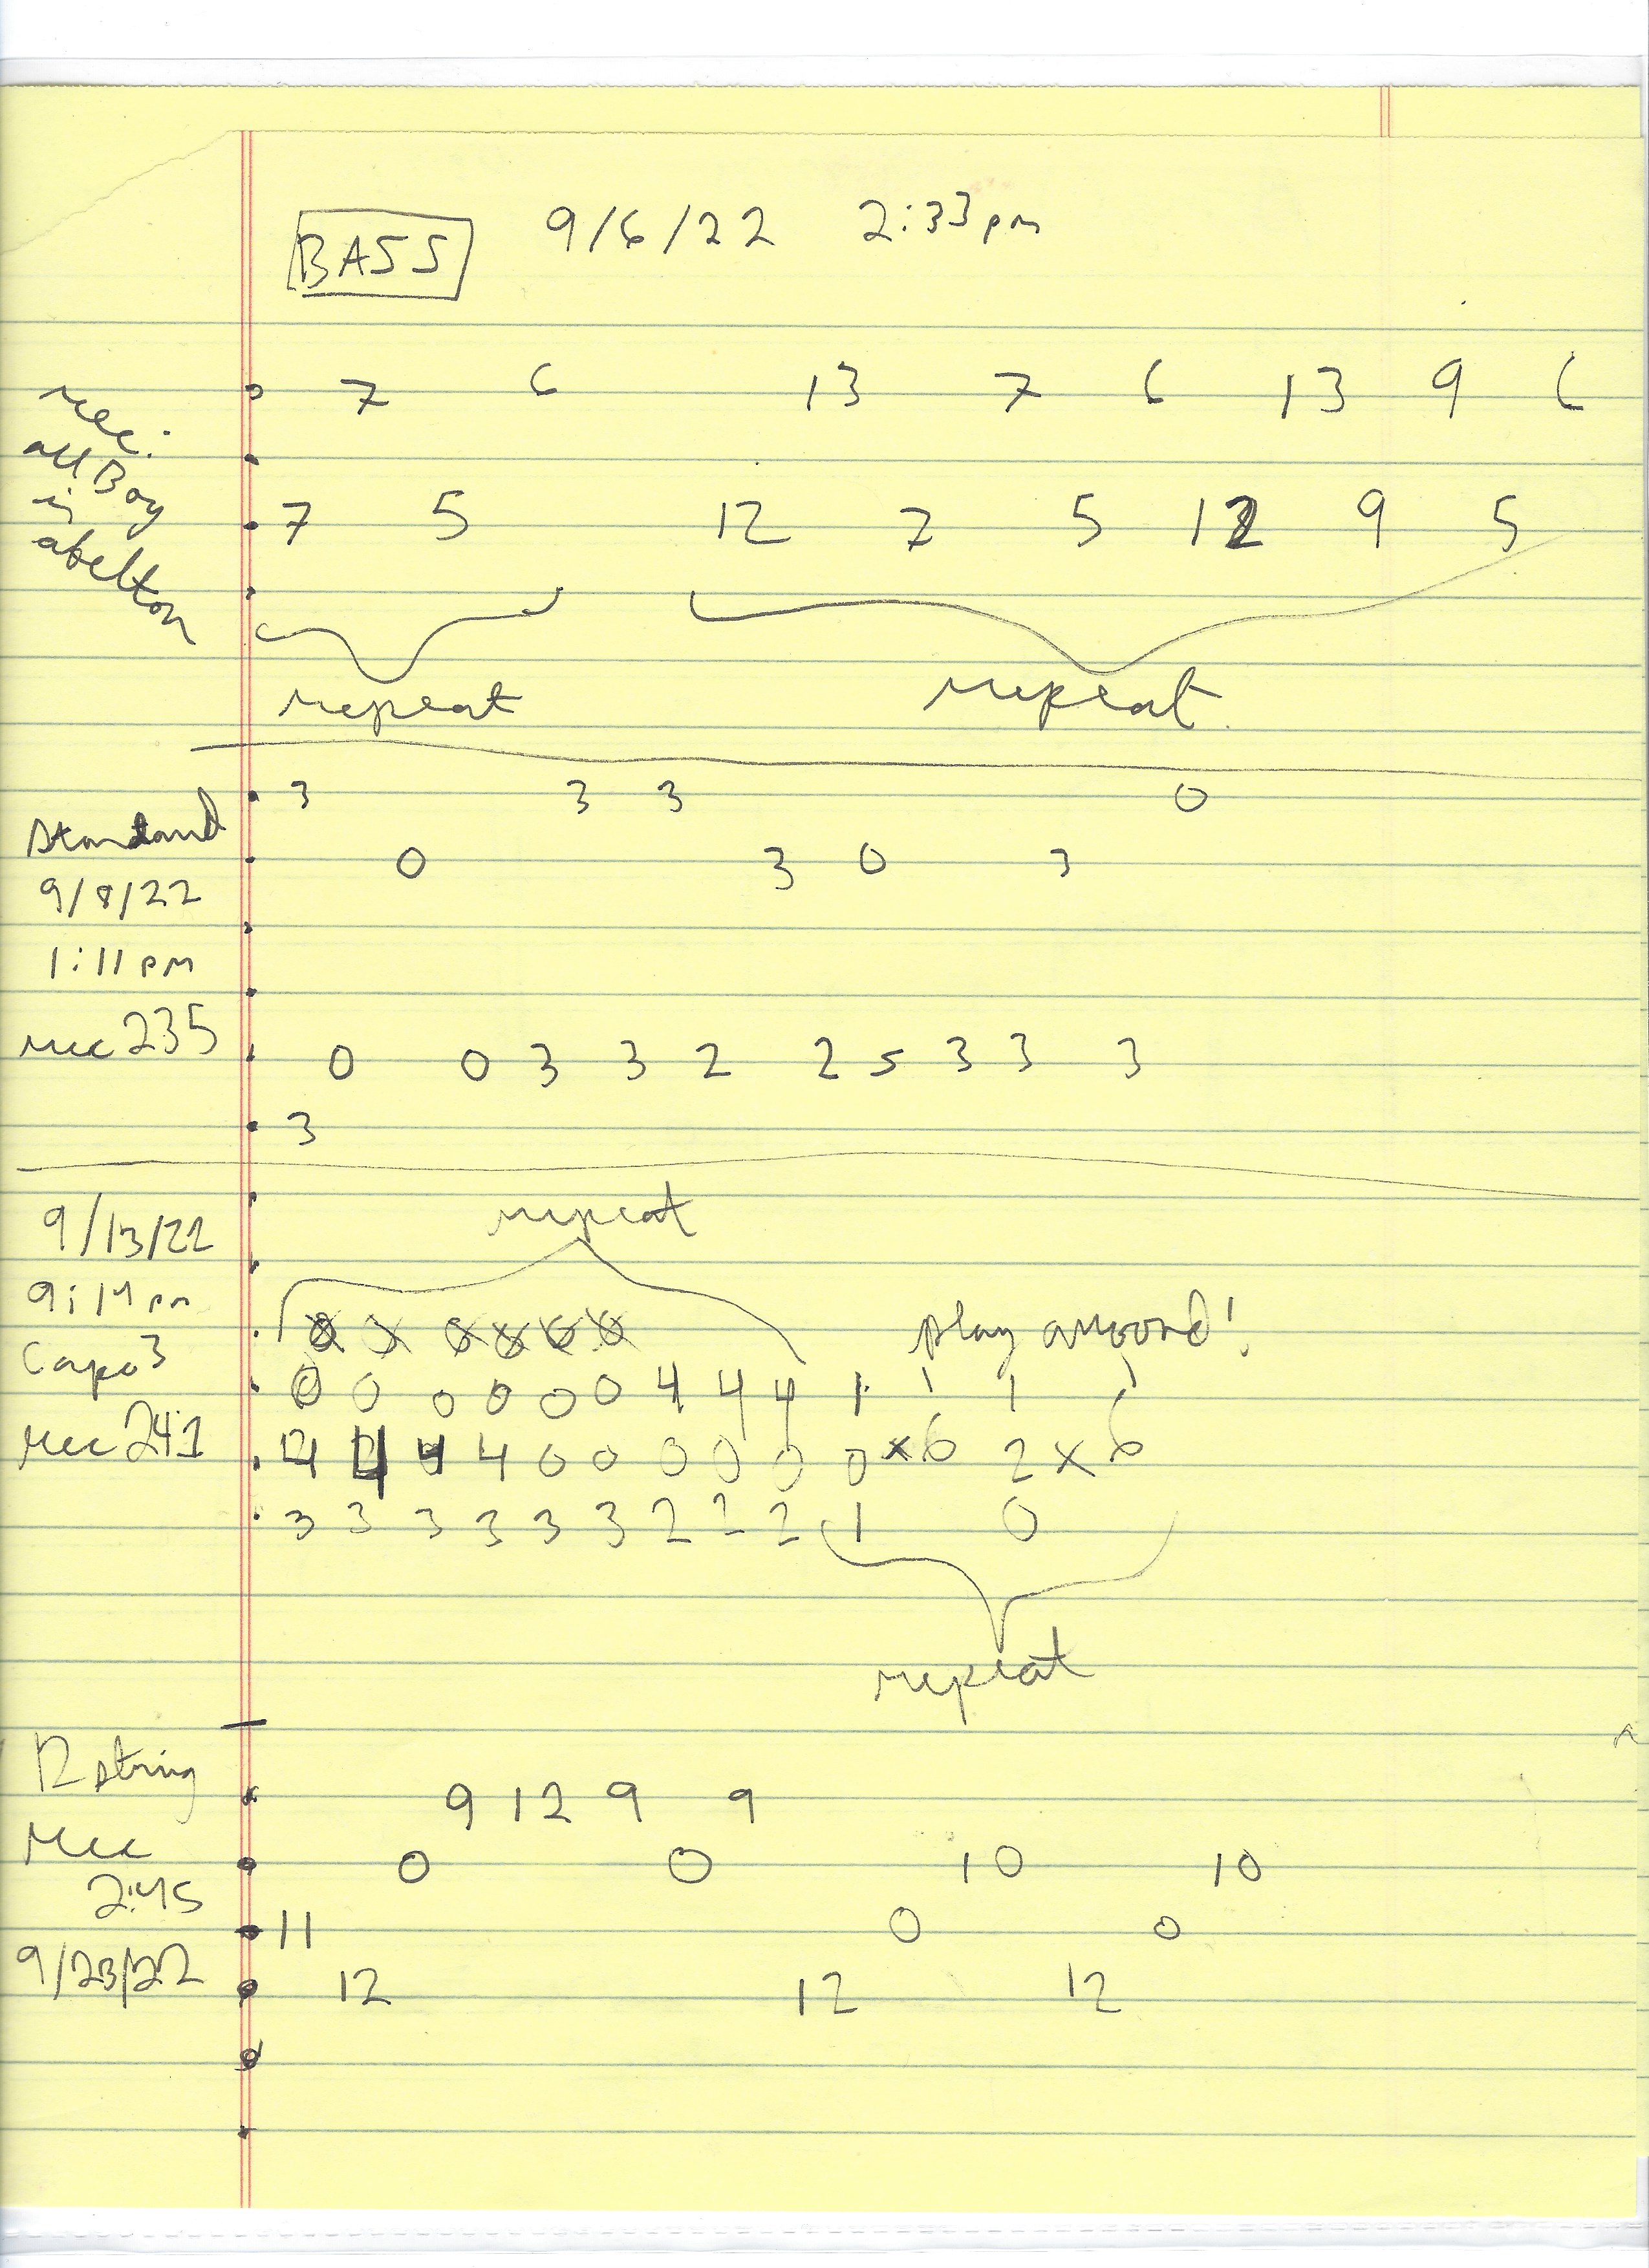 BASS 9/6/22 2:33pm
rec:
all Boy
in
abelton
7 6 13 7 6 13 9 6
7 5 12 7 5 12 9 5
repeat repeat
3 3 3 0
Standard
0 3 0 3
9/8/22
1:11 pm
rec 235
0 0 3 3 2 2 5 3 3 3
3
9/13/22
repeat
9:14 pm
Capo 3
play around!
0 0 0 0 0 0 4 4 4 1 1 1 1
rec 241
4 4 4 4 0 0 0 0 0 0 x 6 2 x 6
3 3 3 3 3 3 2 2 2 1 0
repeat
12 string
9 12 9 9
rec
0 0 10 10
2:45
11 0 0
9/23/22
12 12 12